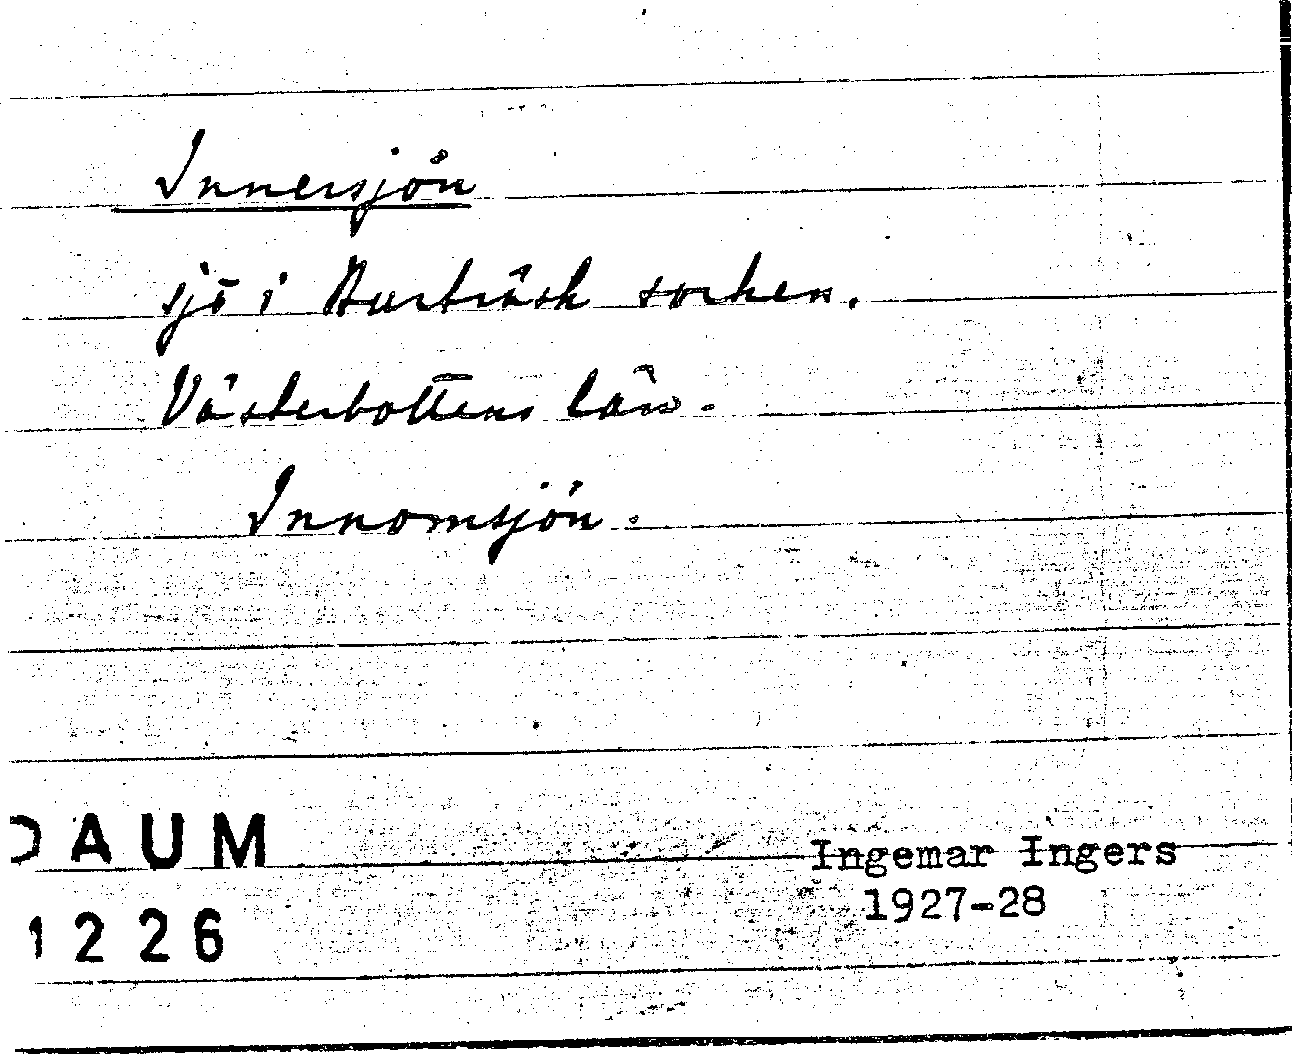 Innersjön
sjö i Burträsk socken.
Västerbottens län.
Innomsjön.
DAUM
1226
Ingemar Ingers
1927-28